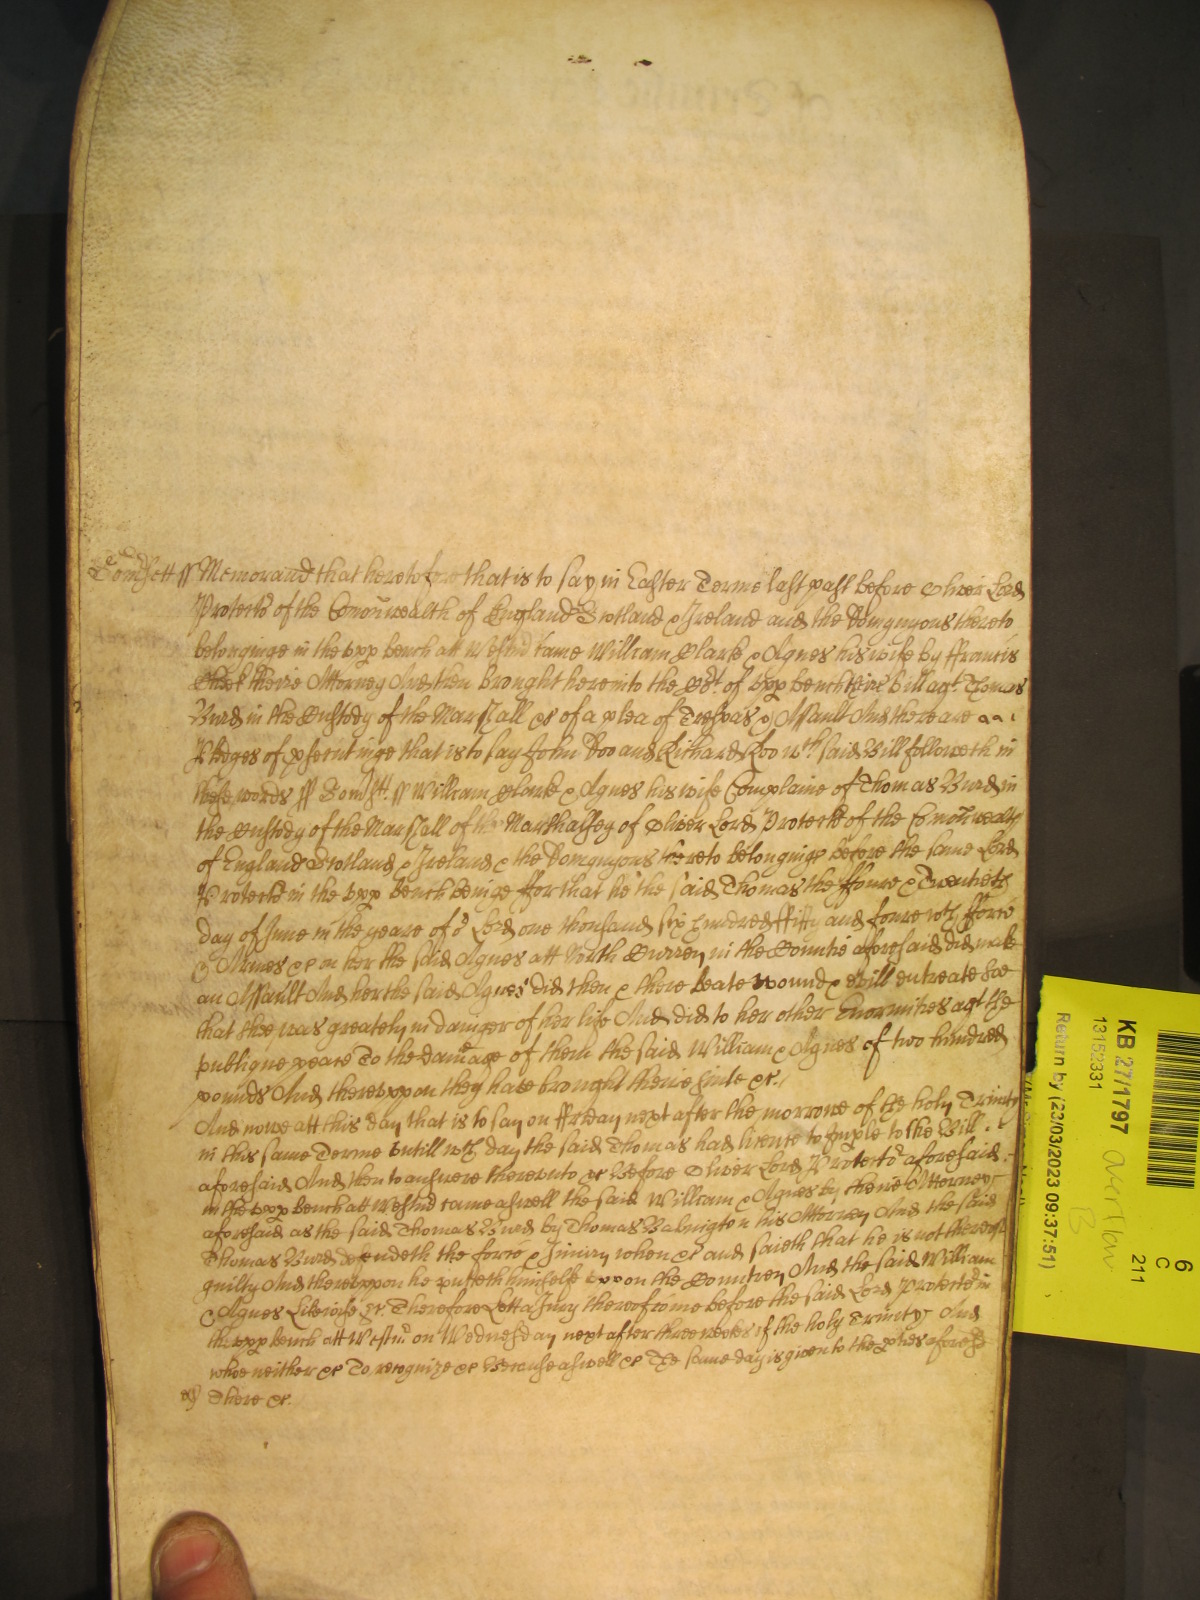 Somsett ss Memorand that heretofore that is to say in Easter Terme last past before Oliver Lord
Protector of the Comonwealth of England Scotland & Ireland and the Domynyons thereto
belonginge in the upp bench att Westm came William Clarke & Agnes his wife by ffrancis
theire Attorney And then brought here into the Cort of upp bench theire bill agt Thomas
Burd in the Custody of the Marshall &c of a plea of Trespas & Assault And there are
Pledges of psecutinge that is to say John Doo and Richard Roo wch said Bill followeth in
these words ss Somstt ss William Clarke & Agnes his wife Complaine of Thomas Burd in
the Custody of the Marshall of the Marshalsey of Oliver Lord Protector of the Comonwealth
of England Scotland & Ireland & the Domynyons thereto belonginge before the same Lord
Protector in the upp bench beinge ffor that he the said Thomas the ffoure & Twentieth
day of June in the yeare of or Lord one thousand six hundred ffifty and foure wth fforce
& Armes &c on her the said Agnes att North Currey in the Countie aforesaid did make
an Assault And her the said Agnes did then & there beate wound & evill entreate Soe
that shee was greately in daunger of her life And did to her other Enormities agt the
publique peace To the damage of them the said William & Agnes of two hundred
pounds And thereuppon they have brought theire suite &c.
And nowe att this day that is to say on ffriday next after the morrowe of the holy Trinity
in this same Terme untill wch day the said Thomas had licence to Imple to the Bill
aforesaid And then to answere thereunto &c Before Oliver Lord Protector aforesaid
in the upp bench att Westm came aswell the said William & Agnes by theire Attorney
aforesaid as the said Thomas Burd by Thomas Babington his Attorney And the said
Thomas Burd defendeth the force & Iniury when &c and saieth that he is not thereof
guilty And thereuppon he putteth himselfe uppon the Countrey And the said William
& Agnes Likewise &c Therefore Lett a Jury thereof come before the said Lord Protector in
the upp bench att Westm on Wednesday next after three weekes of the holy Trinity And
whoe neither &c To recognize &c Because aswell &c The same day is given to the pties aforesd
There &c.
KB 27/1797
13152331
Return by (23/03/2023 09:37:51)
6
C
211
Overflow
B